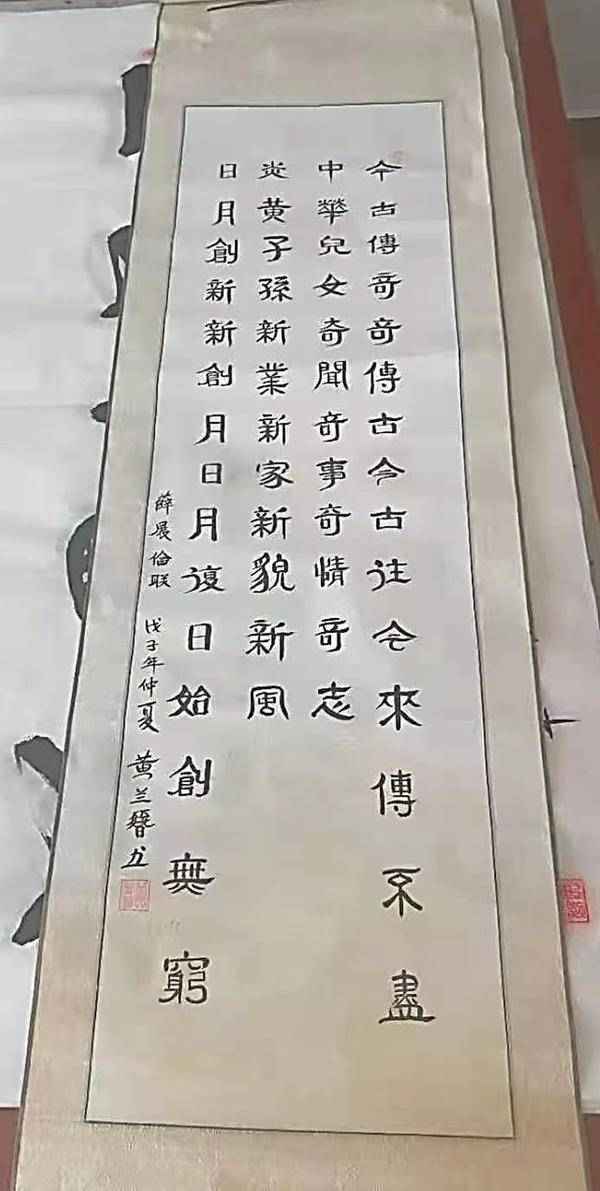 今古傳奇奇傳古今古往今來傳不盡
中華兒女奇聞奇事奇情奇志
炎黄子孫新業新家新貌新風
日月創新新創月日月復日始創無窮
薛展倫联 戊子年仲夏 黄兰书